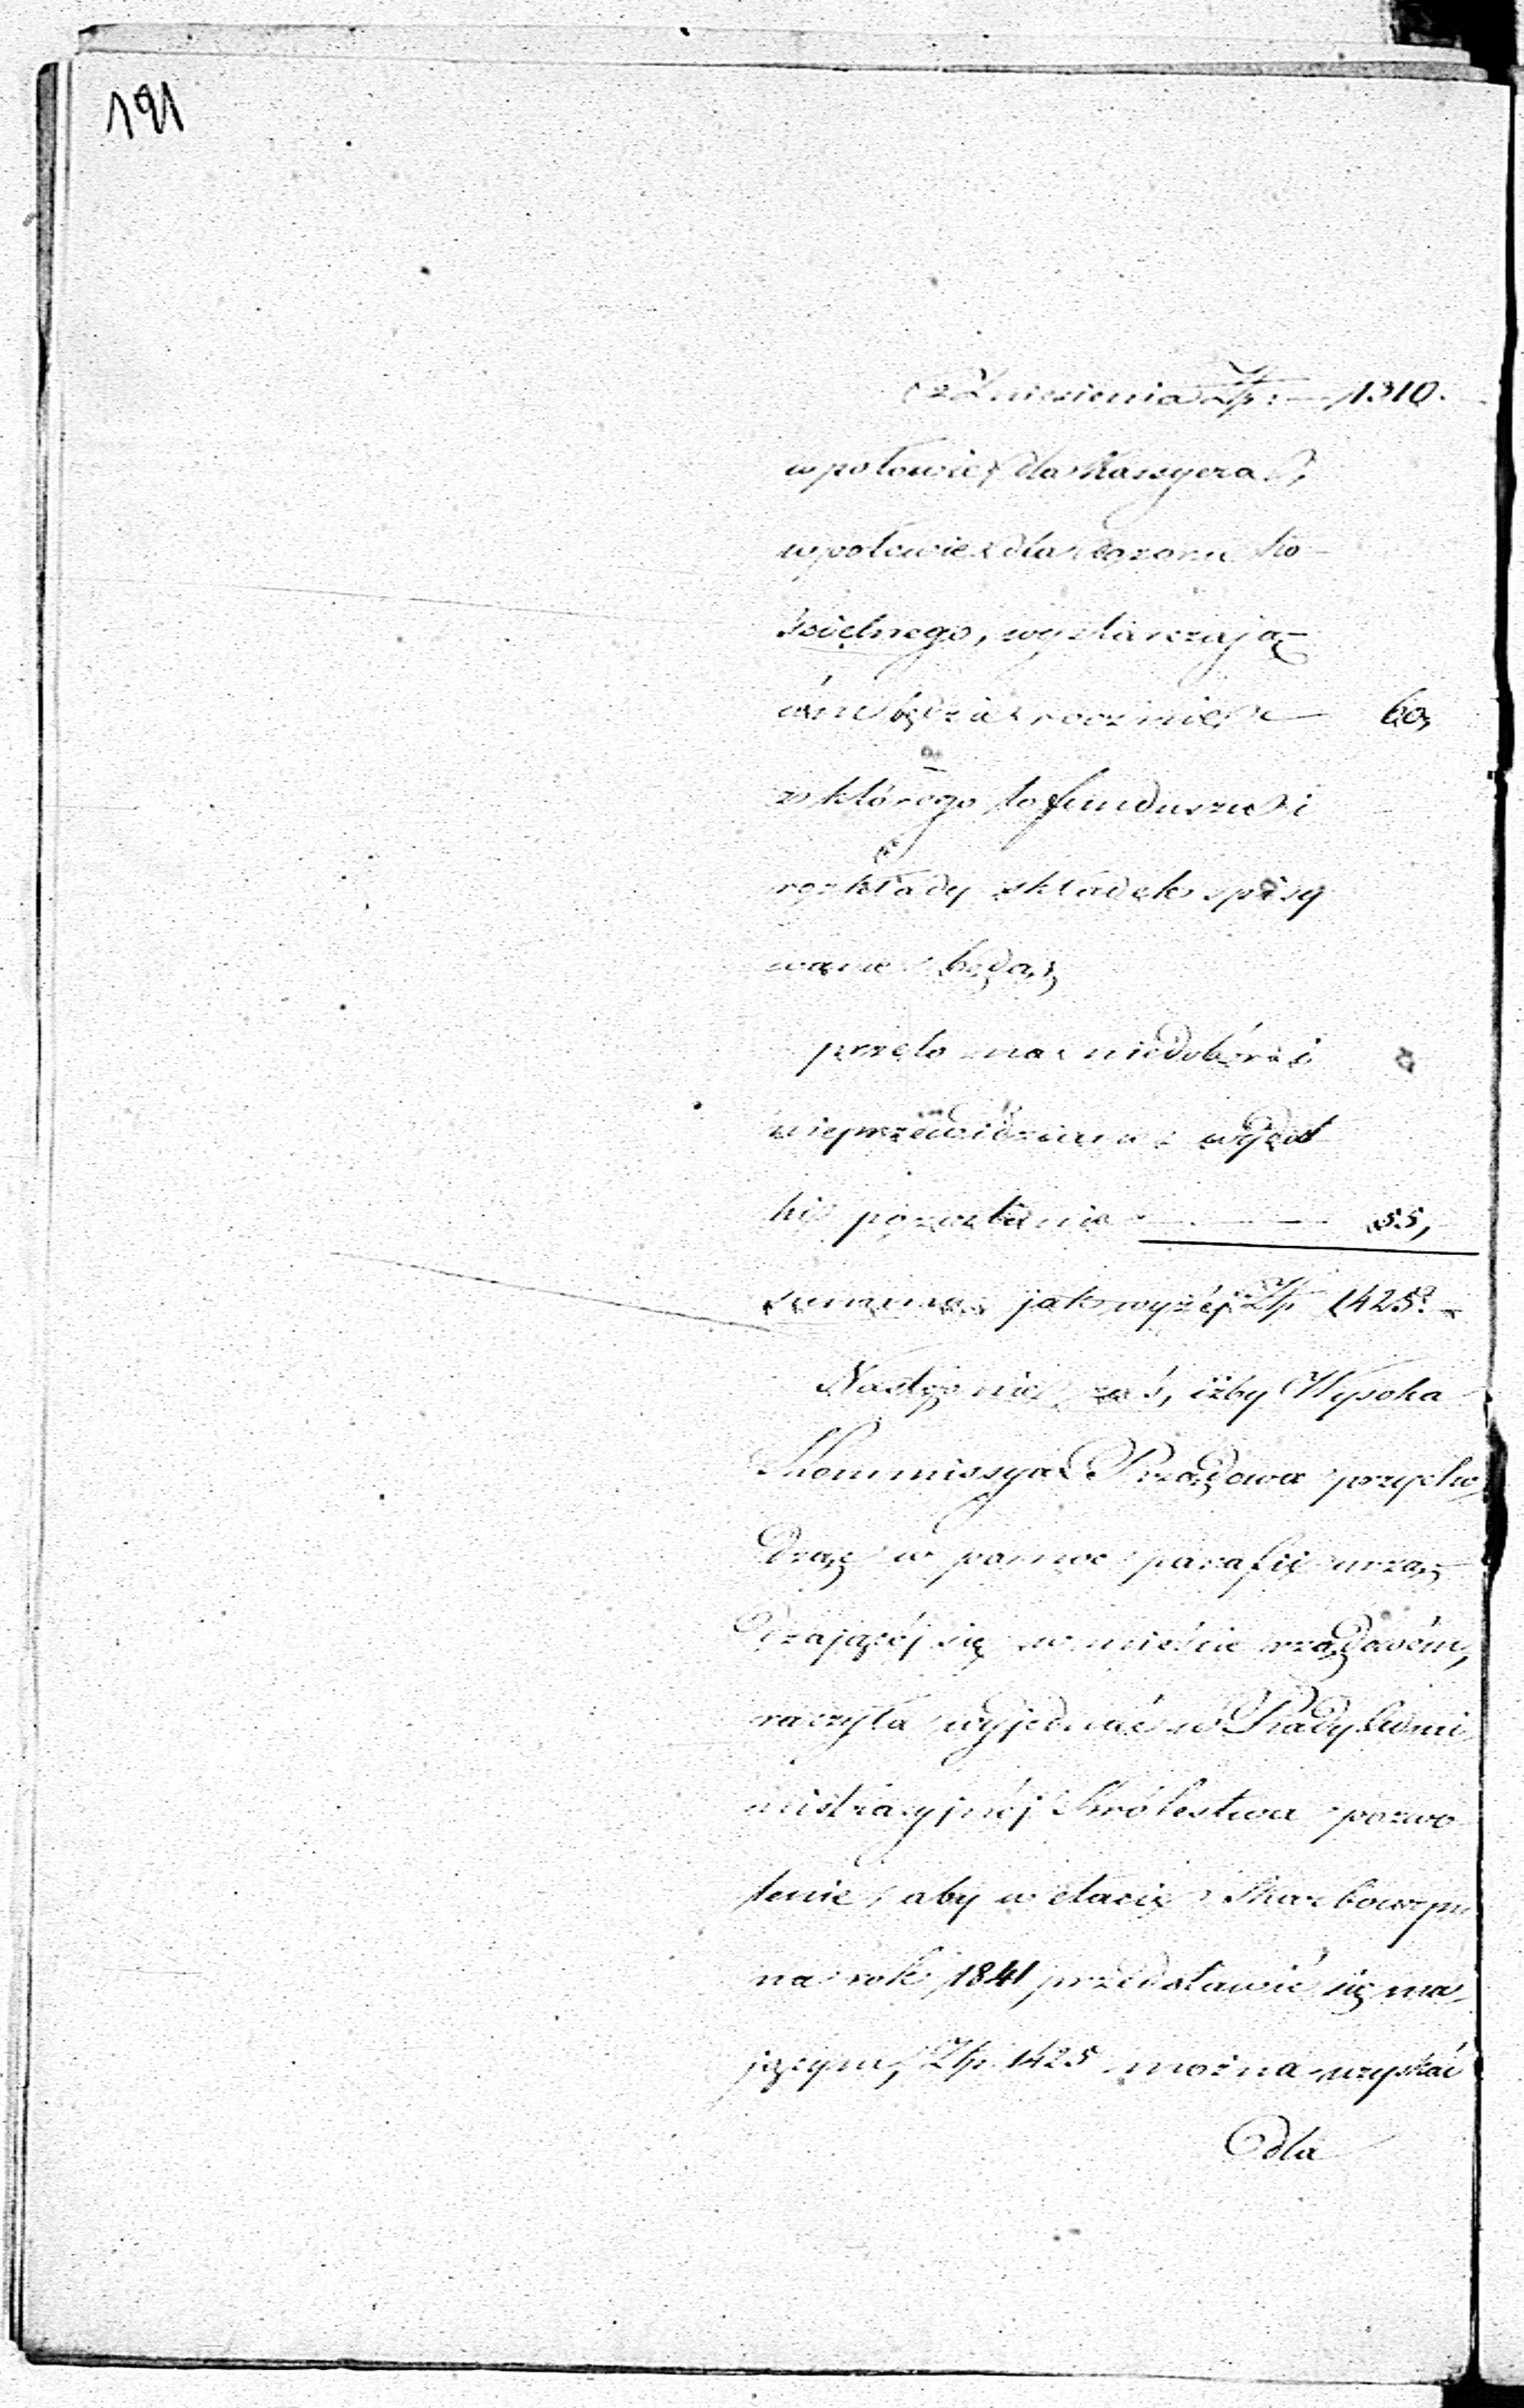 191
z Zniesienia Złp: — 1310.
w połowie dla Kassyera,
w połowie dla dozoru ko-
ścielnego, wystarczają-
cém będzie rocznie — 60,
z którego to funduszu i
rozkłady składek spisy
wane będą,
przeto na niedobór i
nieprzewidziane wydat
ki pozostanie — 55,
summa jak wyżéj Złp 1425.
Następnie zaś, iżby Wysoka
Kommissya Rządowa przycho
dząc w pomoc parafii urzą-
dzającéj się w mieście rządowém,
raczyła wyjednać w Rady Admi
nistracyjnéj Królestwa pozwo
lenie, aby w etacie Skarbowym
na rok 1841 przedstawić się ma
jącym, Złp. 1425 można uzyskać
dla